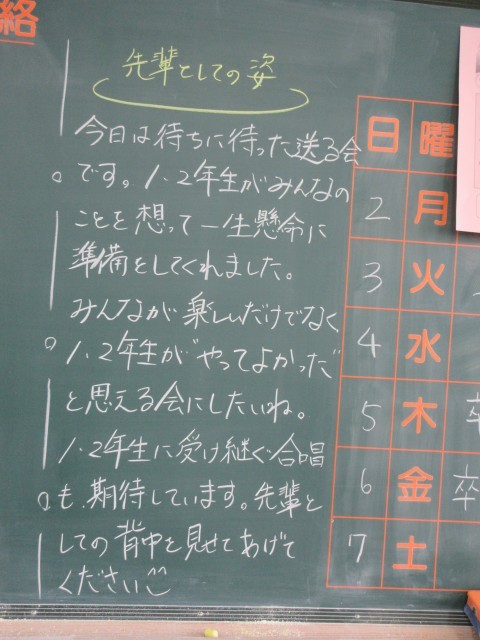 絡
先輩としての姿
今日は待ちに待った送る会
です。1、2年生がみんなの
ことを想って一生懸命に
準備をしてくれました。
みんなが楽しいだけでなく
1、2年生が"やってよかった"
と思える会にしたいね。
1、2年生に受け継ぐ合唱
も、期待しています。先輩と
しての背中を見せてあげて
ください
日 曜
2 月
3 火
4 水
5 木 卒
6 金 卒
7 土